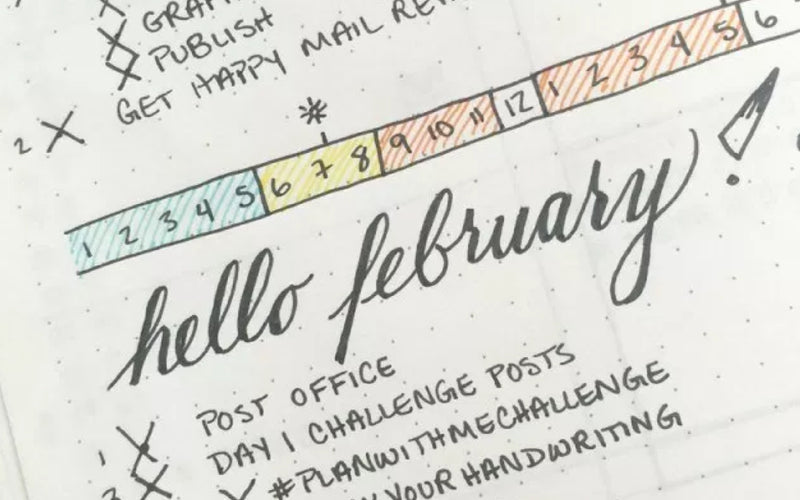 PUBLISH
2 X GET HAPPY MAIL
*
1 2 3 4 5 6 7 8 9 10 11 12 1 2 3 4 5 6
hello february!
POST OFFICE
1 DAY 1 CHALLENGE POSTS
#PLANWITHMECHALLENGE
YOUR HANDWRITING